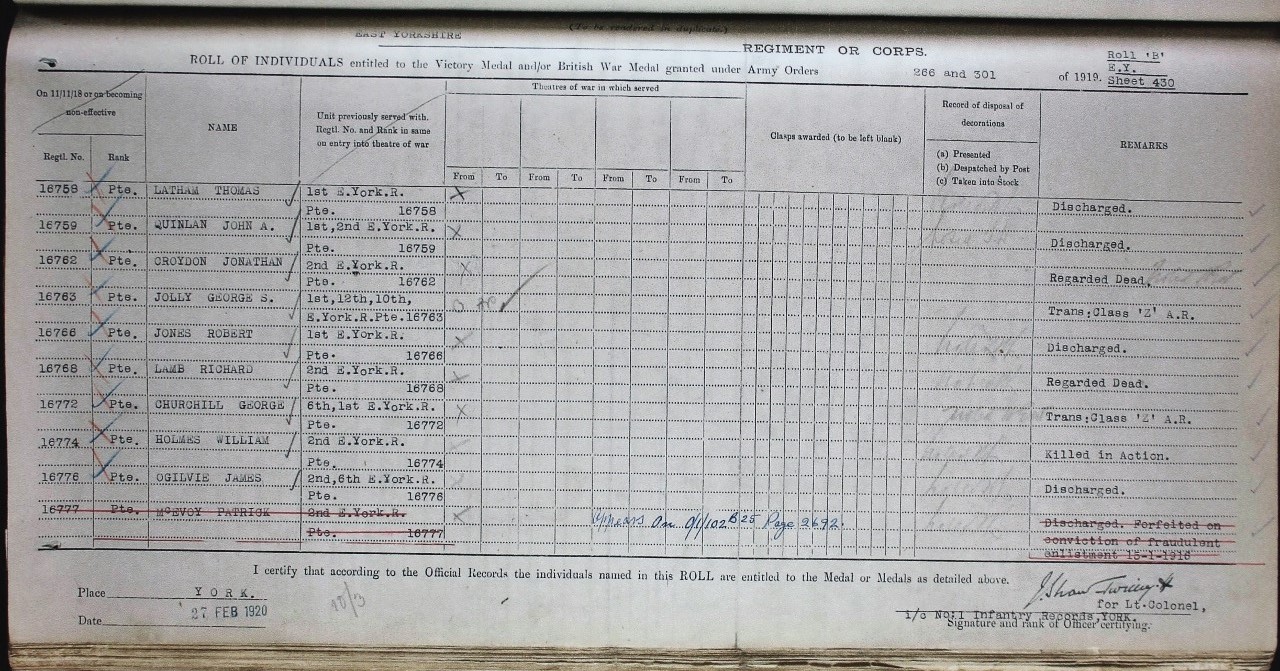 (To be rendered in duplicate.)
EAST YORKSHIRE REGIMENT OR CORPS.
Roll 'B'
E.Y.
Sheet 430
ROLL OF INDIVIDUALS entitled to the Victory Medal and/or British War Medal granted under Army Orders 266 and 301 of 1919.
On 11/11/18 or on becoming non-effective
Regtl. No.
Rank
NAME
Unit previously served with. Regtl. No. and Rank in same on entry into theatre of war
Theatres of war in which served
From To From To From To From To
Clasps awarded (to be left blank)
Record of disposal of decorations
(a) Presented
(b) Despatched by Post
(c) Taken into Stock
REMARKS
16758 Pte. LATHAM THOMAS 1st E.York.R.
Pte. 16758 Discharged.
16759 Pte. QUINLAN JOHN A. 1st,2nd E.York.R.
Pte. 16759 Discharged.
16762 Pte. CROYDON JONATHAN 2nd E.York.R.
Pte. 16762 Regarded Dead.
16763 Pte. JOLLY GEORGE S. 1st,12th,10th,
E.York.R.Pte.16763 Trans:Class 'Z' A.R.
16766 Pte. JONES ROBERT 1st E.York.R.
Pte. 16766 Discharged.
16768 Pte. LAMB RICHARD 2nd E.York.R.
Pte. 16768 Regarded Dead.
16772 Pte. CHURCHILL GEORGE 6th,1st E.York.R.
Pte. 16772 Trans:Class 'Z' A.R.
16774 Pte. HOLMES WILLIAM 2nd E.York.R.
Pte. 16774 Killed in Action.
16776 Pte. OGILVIE JAMES 2nd,6th E.York.R.
Pte. 16776 Discharged.
16777 Pte. McEVOY PATRICK 2nd E.York.R.
Appears on O/1/102 B25 Page 2692.
Pte. 16777 Discharged. Forfeited on
conviction of fraudulent
enlistment 15-1-1916
I certify that according to the Official Records the individuals named in this ROLL are entitled to the Medal or Medals as detailed above.
Place YORK.
Date 27 FEB 1920
10/3
for Lt-Colonel,
i/c No:1 Infantry Records, YORK.
Signature and rank of Officer certifying.